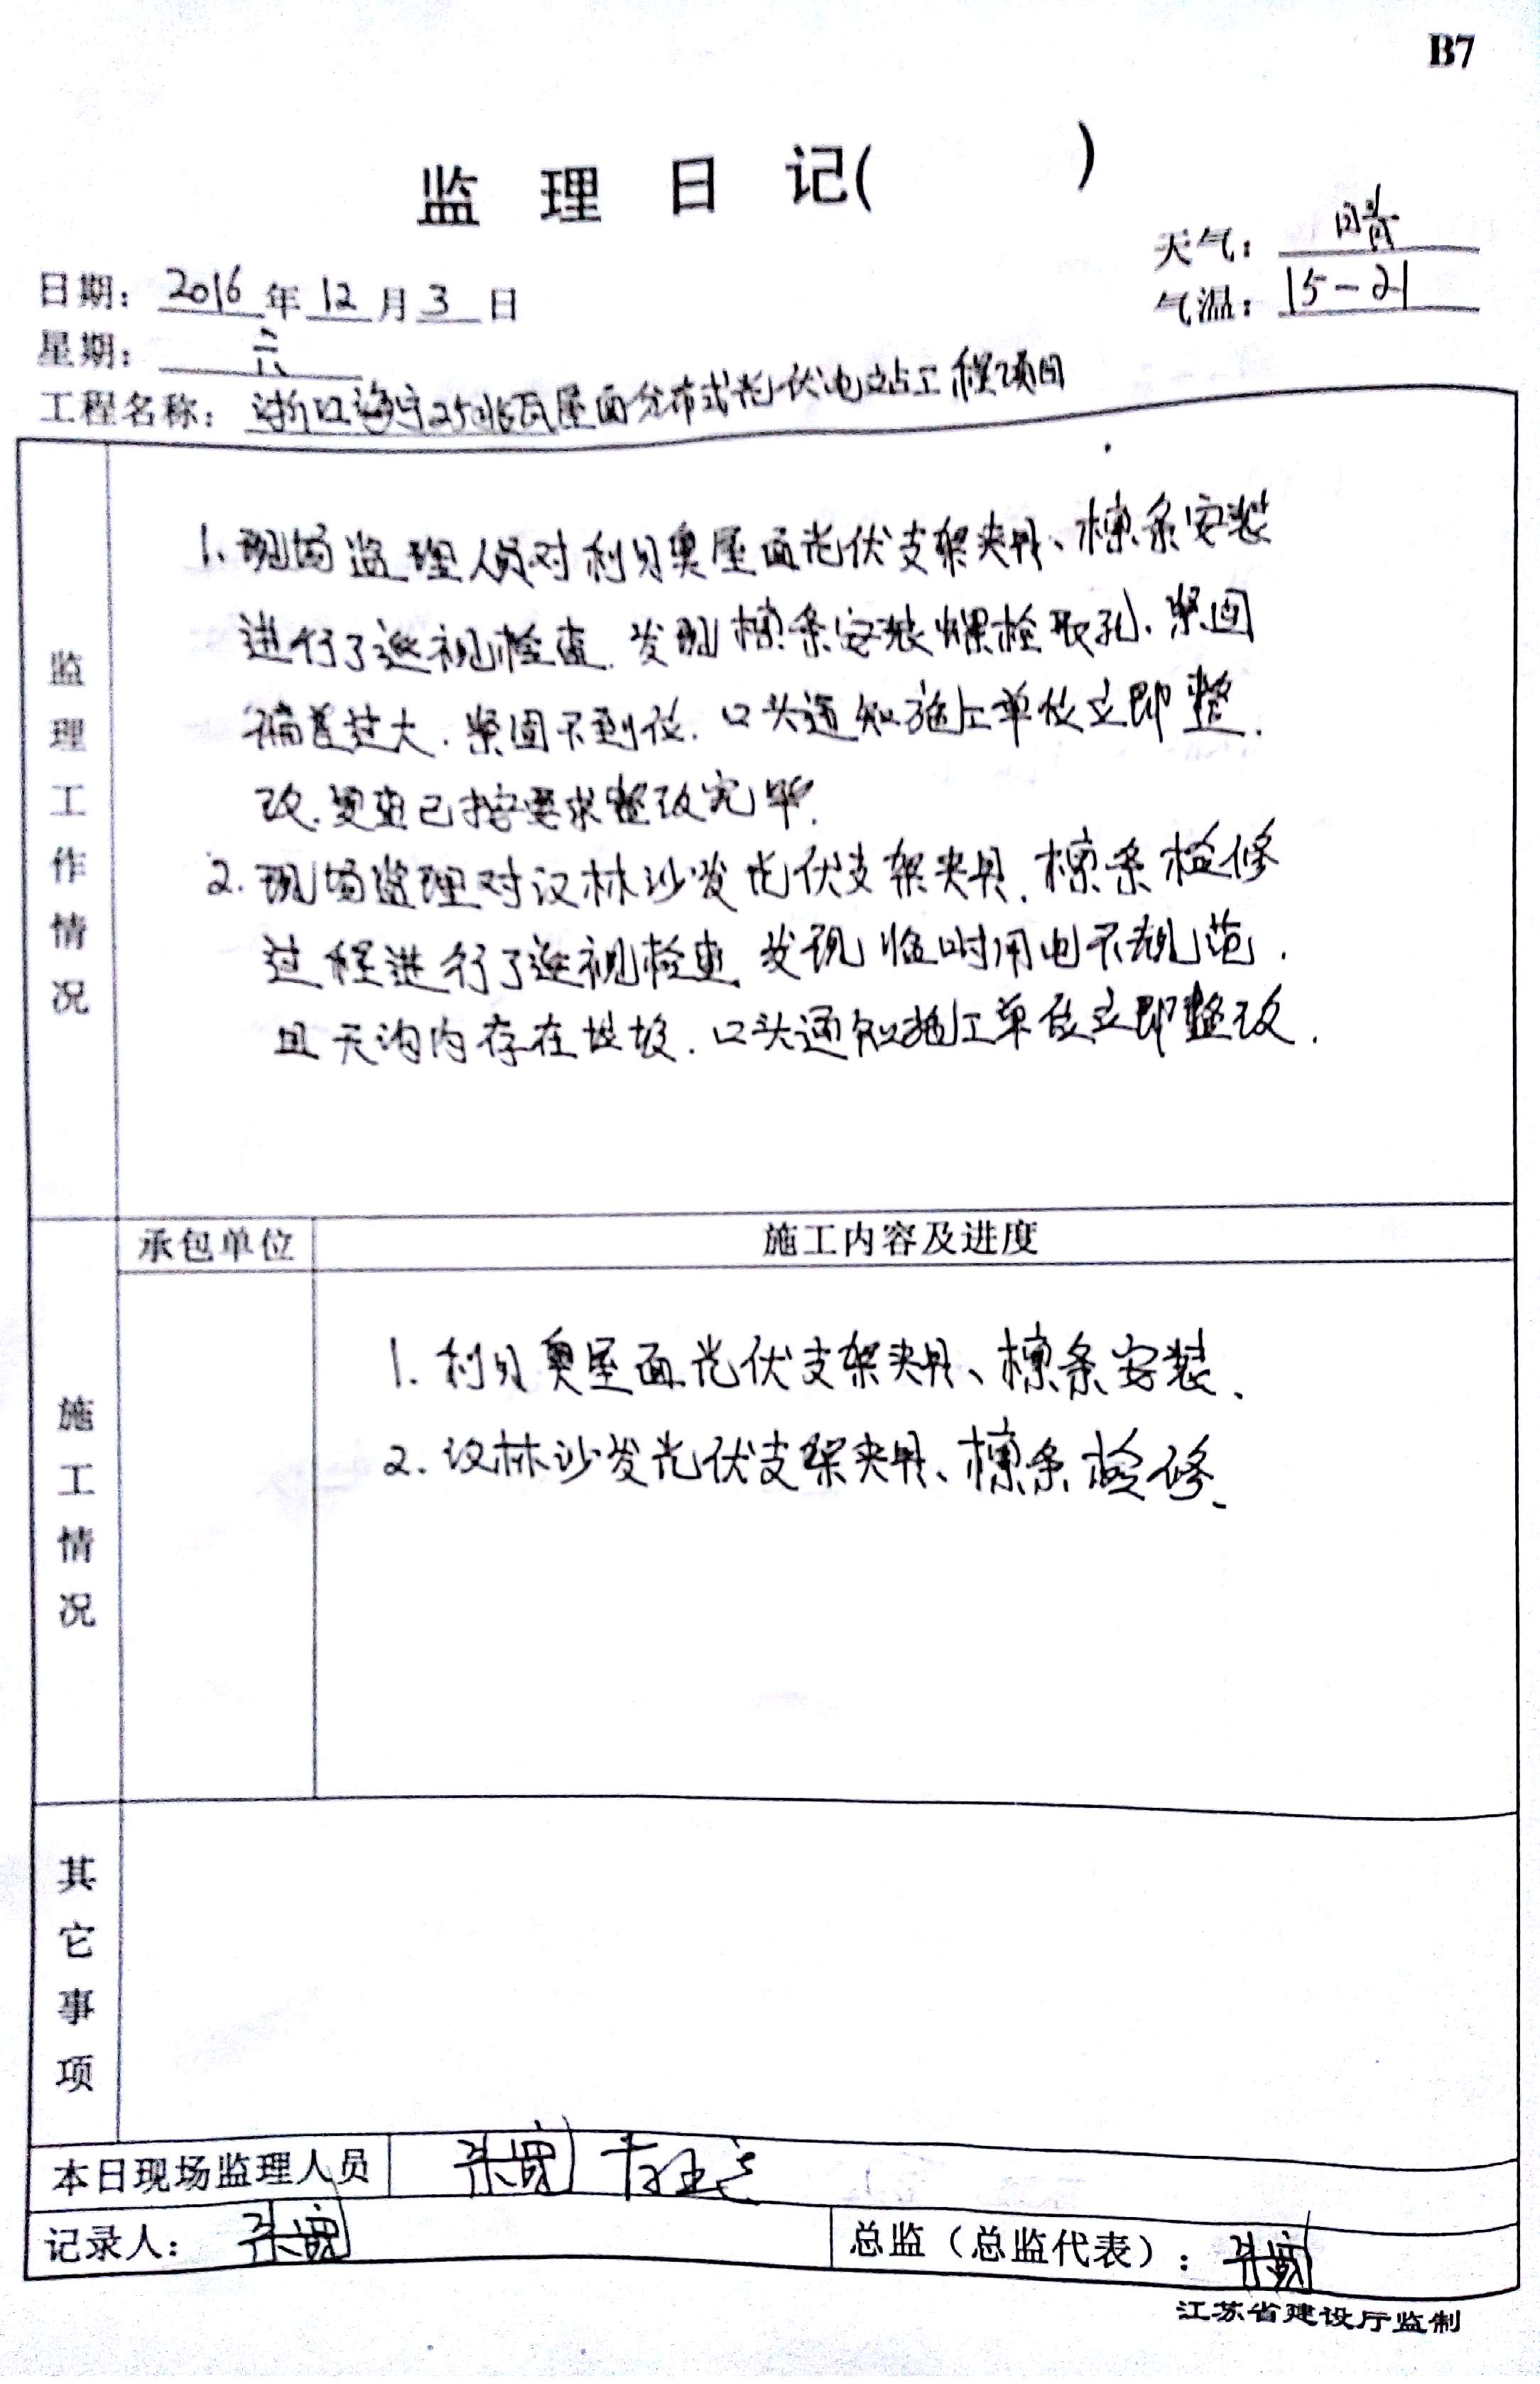 B7
监 理 日 记( )
天气：阴
日期：2016年12月3日
气温：15-21
星期：六
工程名称：浙江海宁25兆瓦屋面分布式光伏电站工程项目
监理工作情况
1.现场监理人员对利贝奥屋面光伏支架夹具、檩条安装
进行了巡视检查.发现檩条安装螺栓取孔、紧固
偏差过大.紧固不到位.口头通知施工单位立即整
改.复查已按要求整改完毕.
2.现场监理对汉林沙发光伏支架夹具.檩条检修
过程进行了巡视检查.发现临时用电不规范.
且天沟内存在垃圾.口头通知施工单位立即整改.
承包单位 施工内容及进度
施工情况
1.利贝奥屋面光伏支架夹具、檩条安装、
2.汉林沙发光伏支架夹具、檩条检修、
其它事项
本日现场监理人员
记录人：
总监（总监代表）：
江苏省建设厅监制